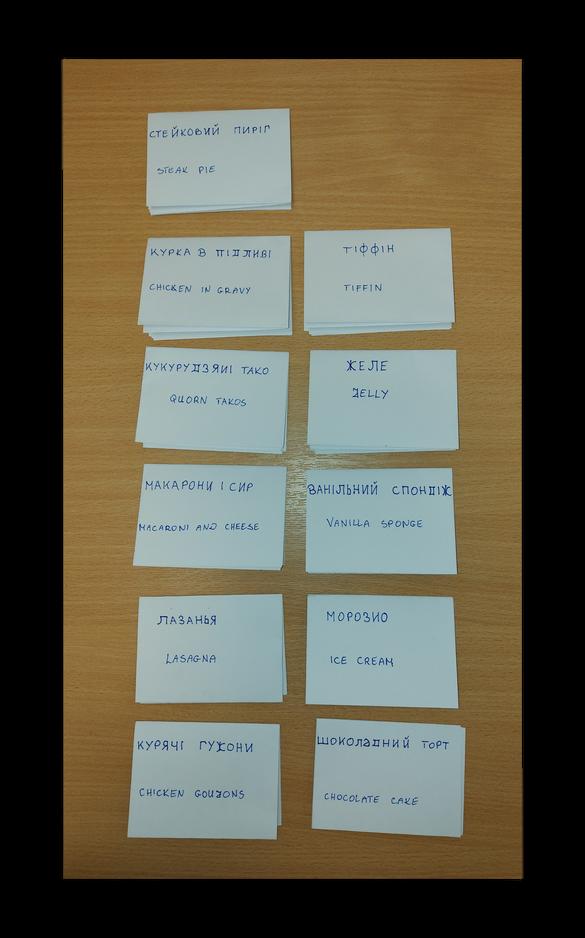 СТЕЙКОВИЙ ПИРІГ
STEAK PIE
КУРКА В ПІДЛИВІ
CHICKEN IN GRAVY
ТІФФІН
TIFFIN
КУКУРУДЗЯНІ ТАКО
QUORN TAKOS
ЖЕЛЕ
JELLY
МАКАРОНИ І СИР
MACARONI AND CHEESE
ВАНІЛЬНИЙ СПОНДЖ
VANILLA SPONGE
ЛАЗАНЬЯ
LASAGNA
МОРОЗИО
ICE CREAM
КУРЯЧІ ГУЖОНИ
CHICKEN GOUJONS
ШОКОЛАДНИЙ ТОРТ
CHOCOLATE CAKE